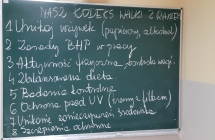 NASZ KODEKS WALKI Z RAKIEM
1 Unikaj używek (papierosy, alkohol)
2 Zasady BHP w pracy
3 Aktywność fizyczna, kontrola wagi
4 Zbilansowana dieta
5 Badania kontrolne
6 Ochrona przed UV (kremy z filtrem)
7 Unikanie zanieczyszczeń środowiska
8 Szczepienia ochronne